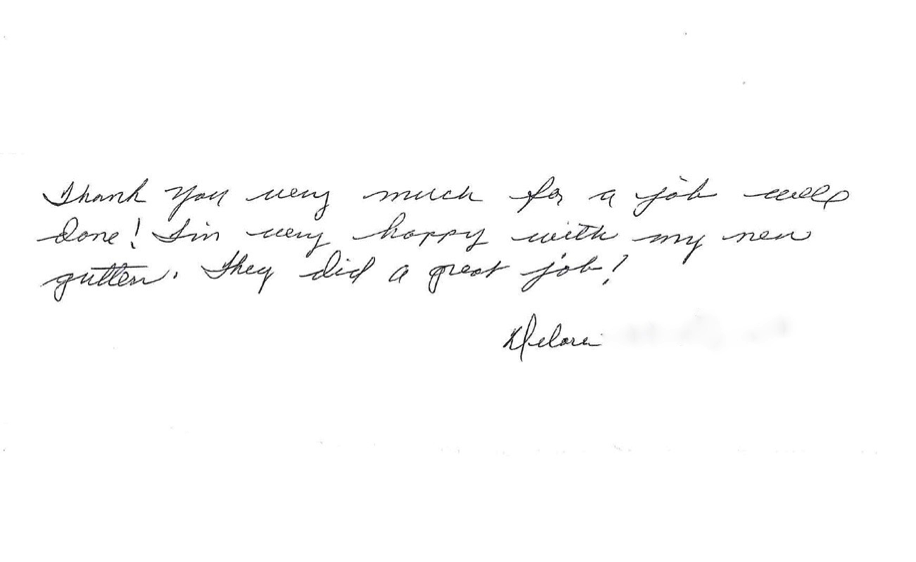 Thank you very much for a job well
done! I'm very happy with my new
gutters. They did a great job!
Delores